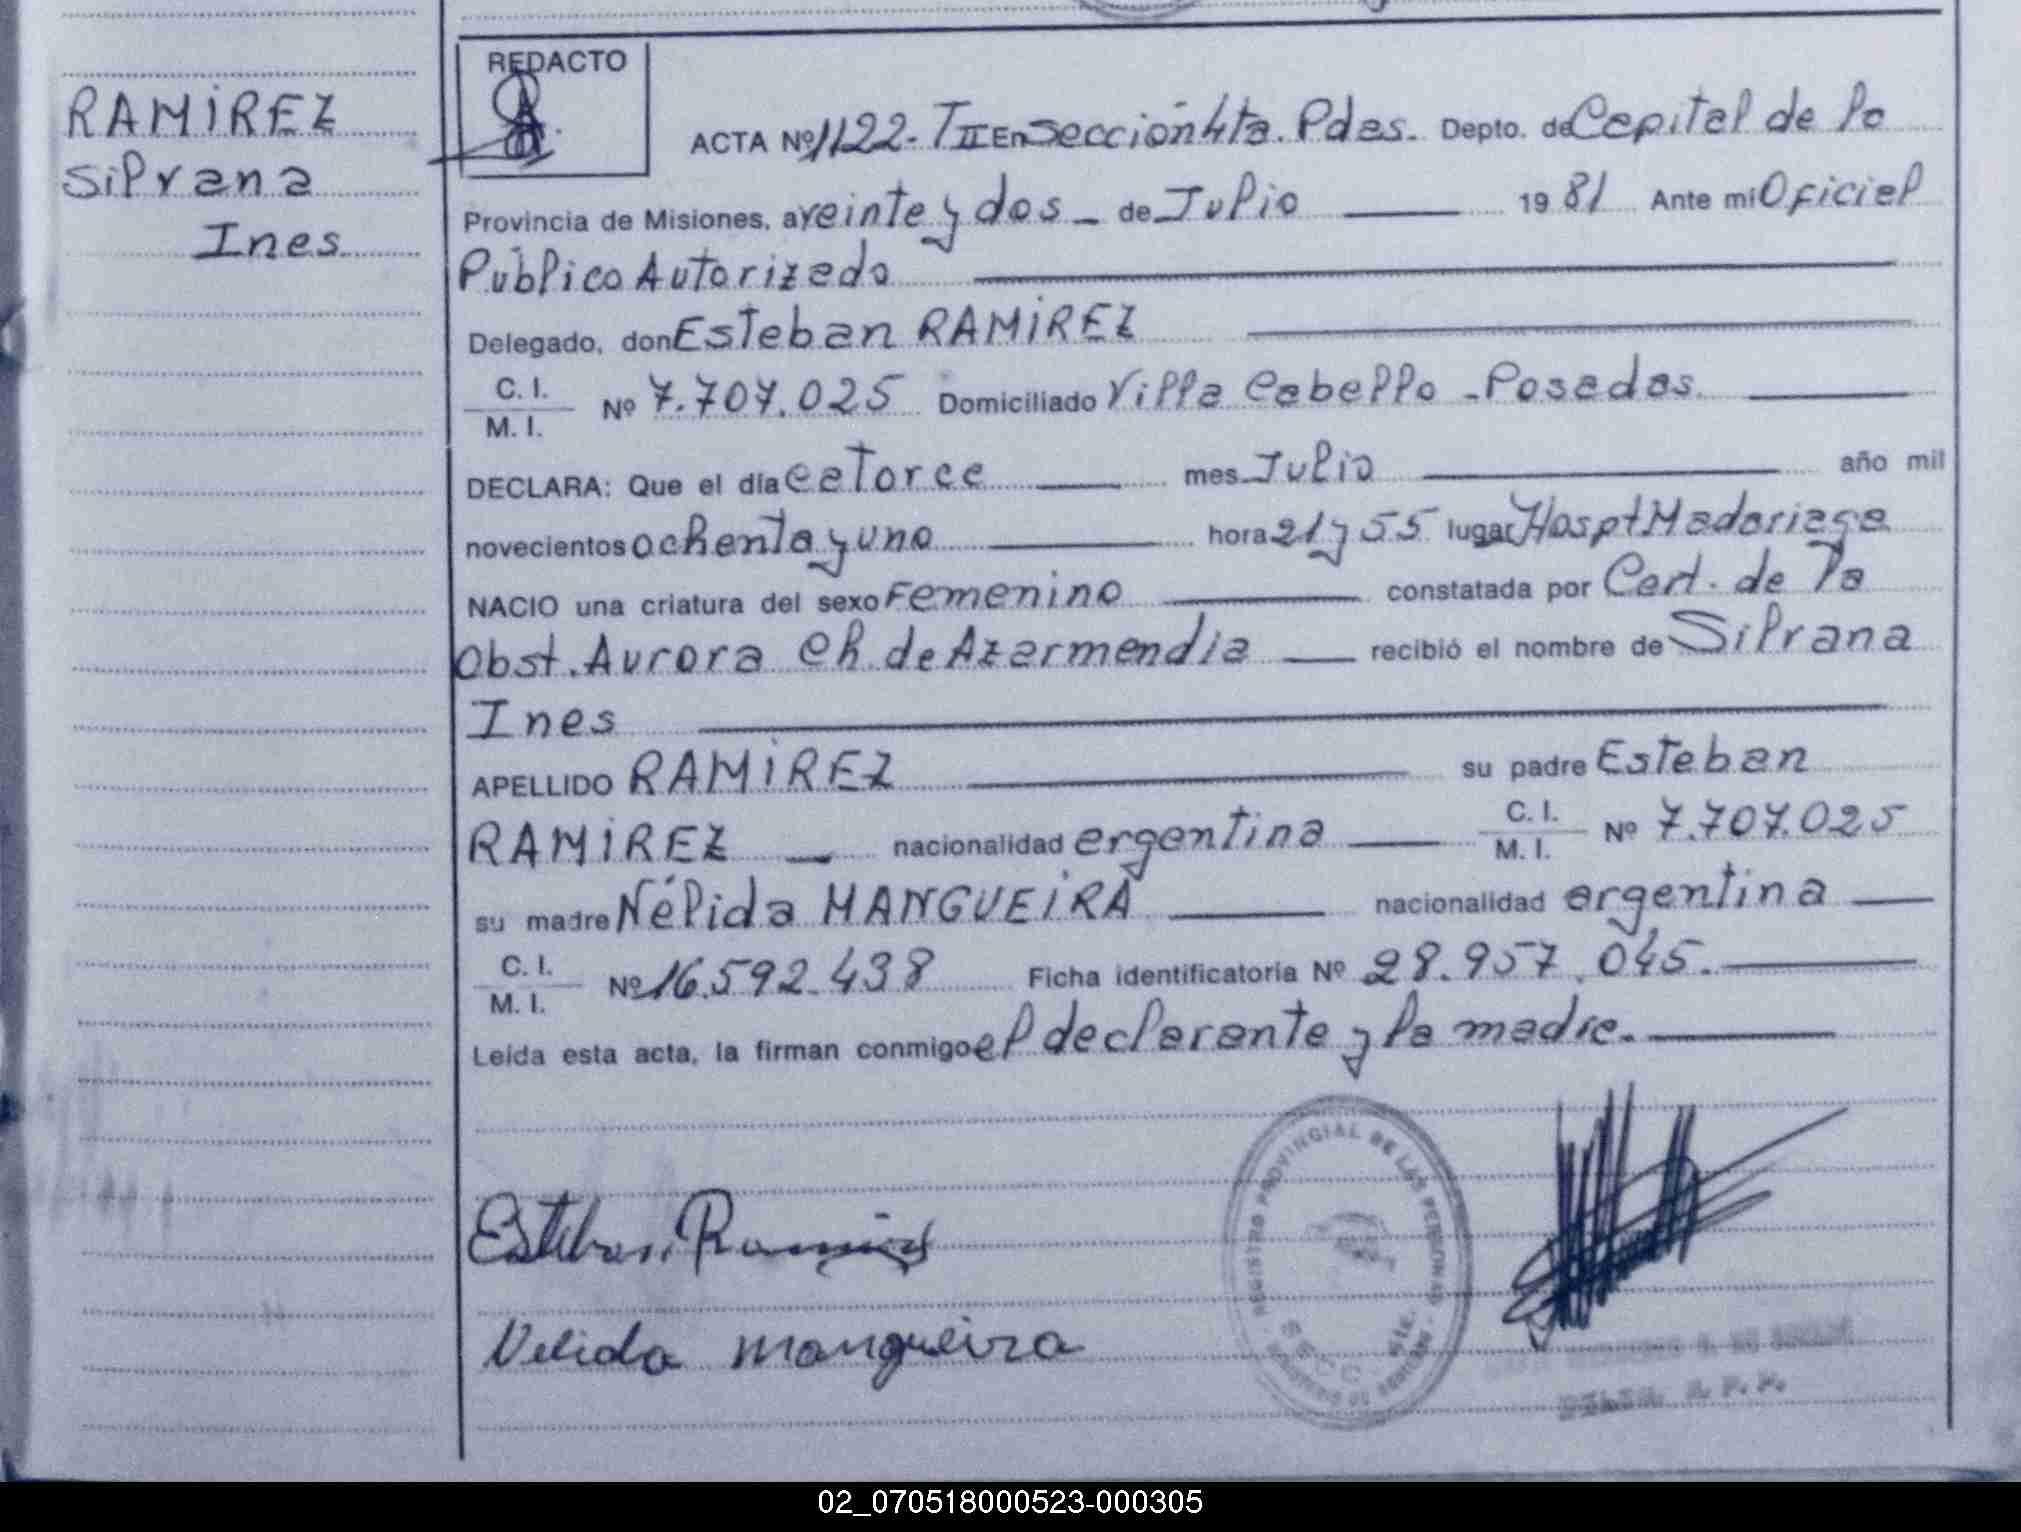 RAMIREZ
Silvana
Ines
REDACTO
ACTA Nº 1122- T II En Sección 4ta. Pdas. Depto. de Capital de la
Provincia de Misiones, a veinte y dos - de Julio 19 81 Ante mi Oficial
Público Autorizado
Delegado, don Esteban RAMIREZ
C. I.
M. I.
Nº 7.707.025 Domiciliado Villa Cabello - Posadas.
DECLARA: Que el día catorce mes Julio año mil
novecientos ochenta y uno hora 21 y 55 lugar Hospt Madariaga
NACIO una criatura del sexo Femenino constatada por Cert. de la
Obst. Aurora Ch. de Azarmendia recibió el nombre de Silvana
Ines
APELLIDO RAMIREZ su padre Esteban
RAMIREZ nacionalidad argentina C. I. / M. I. Nº 7.707.025
su madre Nélida MANGUEIRA nacionalidad argentina
C. I.
M. I.
Nº 16.592.438 Ficha identificatoria Nº 28.957.045.
Leída esta acta, la firman conmigo el declarante y la madre.
REGISTRO PROVINCIAL DE LAS PERSONAS
SECC. 4ta.
Esteban Ramirez
Nelida mangueira
02_070518000523-000305